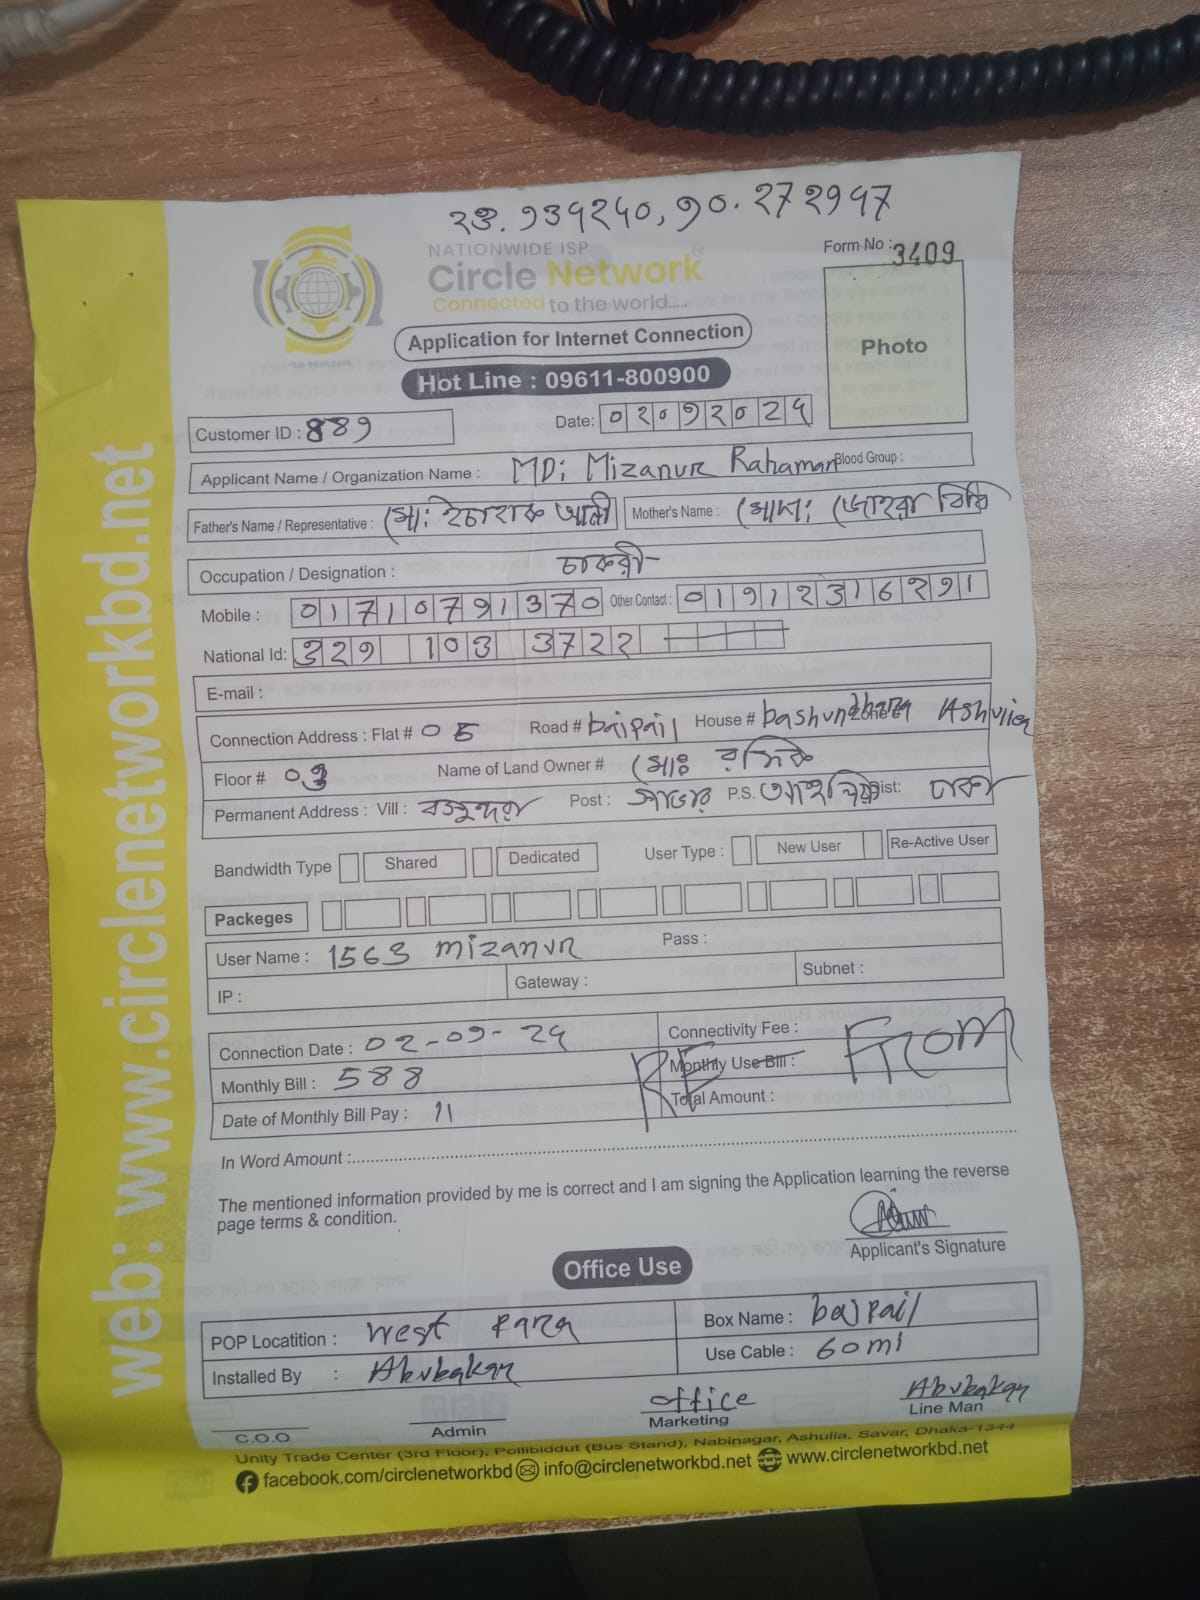 ২৩.৯৩৭২৪০, ৯০.২৭২৯47
NATIONWIDE ISP
Circle Network
Connected to the world.....
ISO 9001:2015
Form No : 3409
Photo
Application for Internet Connection
Hot Line : 09611-800900
Customer ID : 889
Date: ০২০৯২০২৪
Applicant Name / Organization Name : MD: Mizanur Rahaman Blood Group :
Father's Name / Representative : মো: আলী Mother's Name : মোসা: জোহরা বিবি
Occupation / Designation : চাকরী
Mobile : 01710791370 Other Contact : 01912316291
National Id: 329 103 3722
E-mail :
Connection Address : Flat # 05 Road # baipail House # bashundhara Zone #
Floor # 03 Name of Land Owner # মোঃ রফিক
Permanent Address : Vill : বসুন্ধরা Post : সাভার P.S. আশুলিয়া Dist: ঢাকা
Bandwidth Type Shared Dedicated User Type : New User Re-Active User
Packeges
User Name : 1563 mizanur Pass :
IP : Gateway : Subnet :
Connection Date : 02-09-24 Connectivity Fee :
Monthly Bill : 588 Monthly Use Bill :
RE From
Date of Monthly Bill Pay : 11 Total Amount :
In Word Amount :
The mentioned information provided by me is correct and I am signing the Application learning the reverse
page terms & condition.
Applicant's Signature
Office Use
POP Locatition : West Para Box Name : baipail
Installed By : Abubakar Use Cable : 60mi
office Abubakar
C.O.O Admin Marketing Line Man
Unity Trade Center (3rd Floor), Pollibiddut (Bus Stand), Nabinagar, Ashulia, Savar, Dhaka-1344
facebook.com/circlenetworkbd info@circlenetworkbd.net www.circlenetworkbd.net
web: www.circlenetworkbd.net